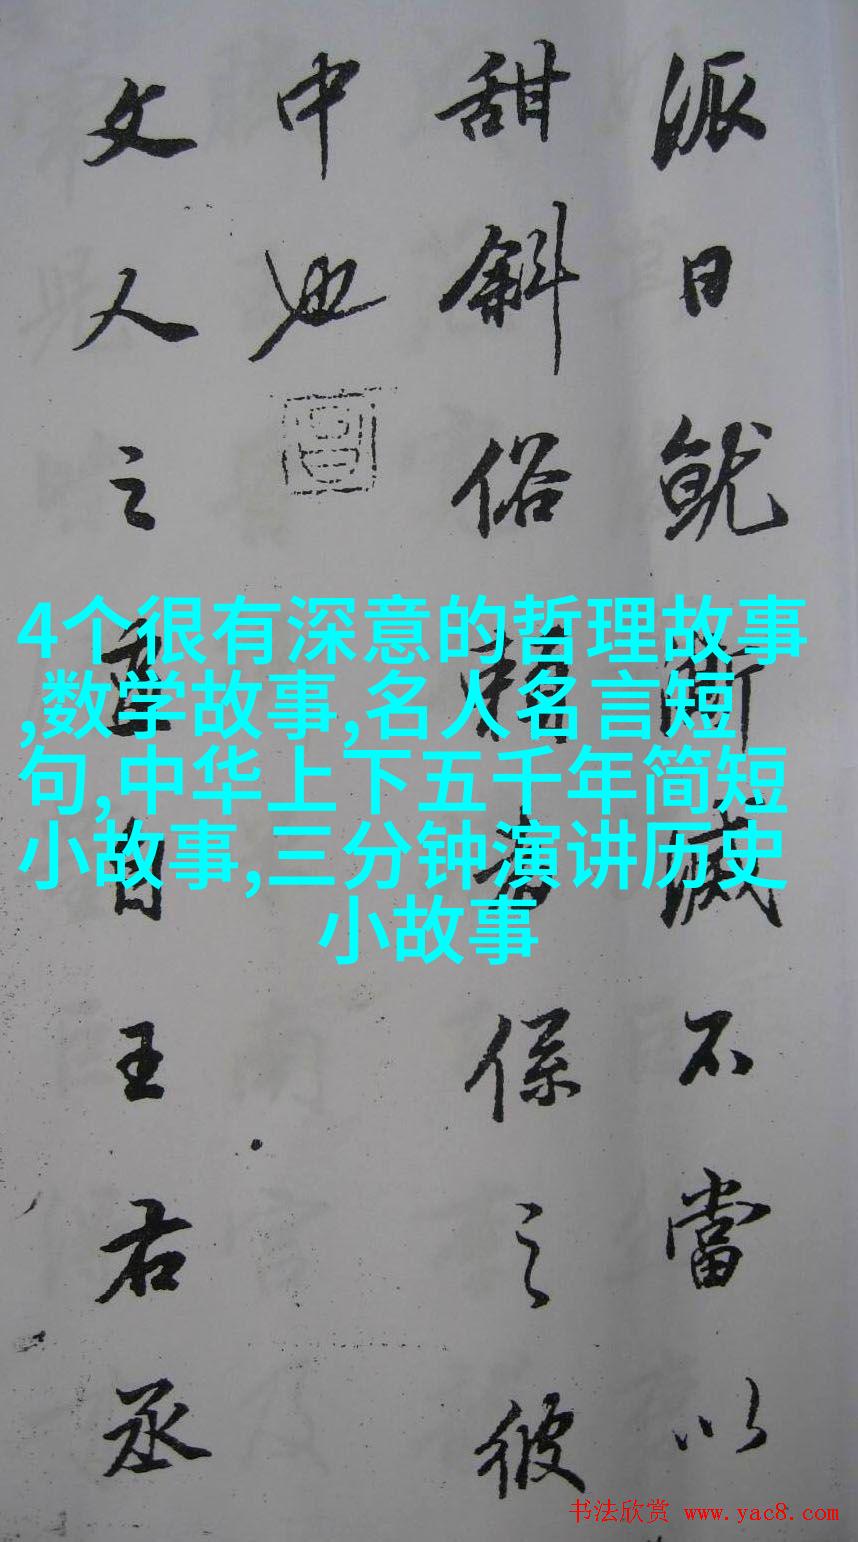 派日就澌滅不當以
甜斜俗賴者係之彼
中也
文人之畫自王右丞
4个很有深意的哲理故事
,数学故事,名人名言短
句,中华上下五千年简短
小故事,三分钟演讲历史
小故事
书法欣赏 www.yac8.com